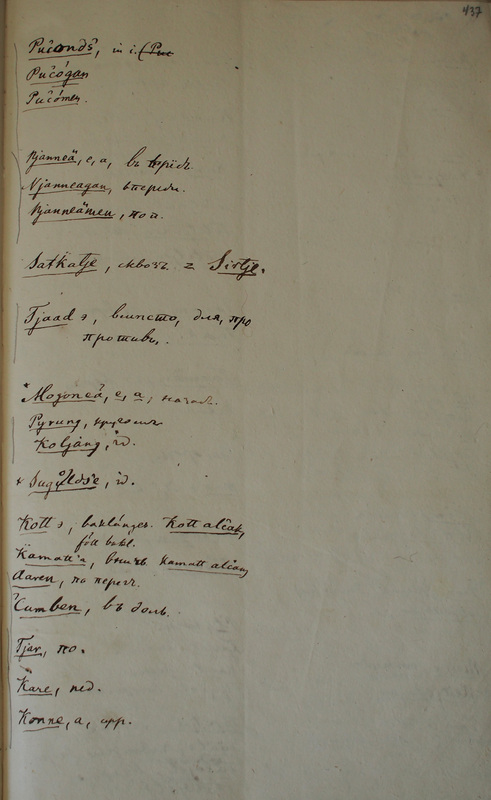 437
Pučonds, in i. (Puč
Pučógan
Pučómen.
Njanneä, e, a, въ
Njanneagan, впереди.
Njanneämen, по п.
Satkatje, сквозь. = Sirtje.
Tjaad э, вмѣсто, для, про
противъ.
* Mogoneä, e, a, назадъ.
Pyrung, кругомъ
Koljäng, id.
id.
Kott э, baklänges. Kott alčak,
fött bakl.
Kamatt'a, внизъ. Kamatt alčak,
Aaren, по перег.
Cumben, въ доль.
Tjar, по.
Kare, ned.
Konne, a, upp.